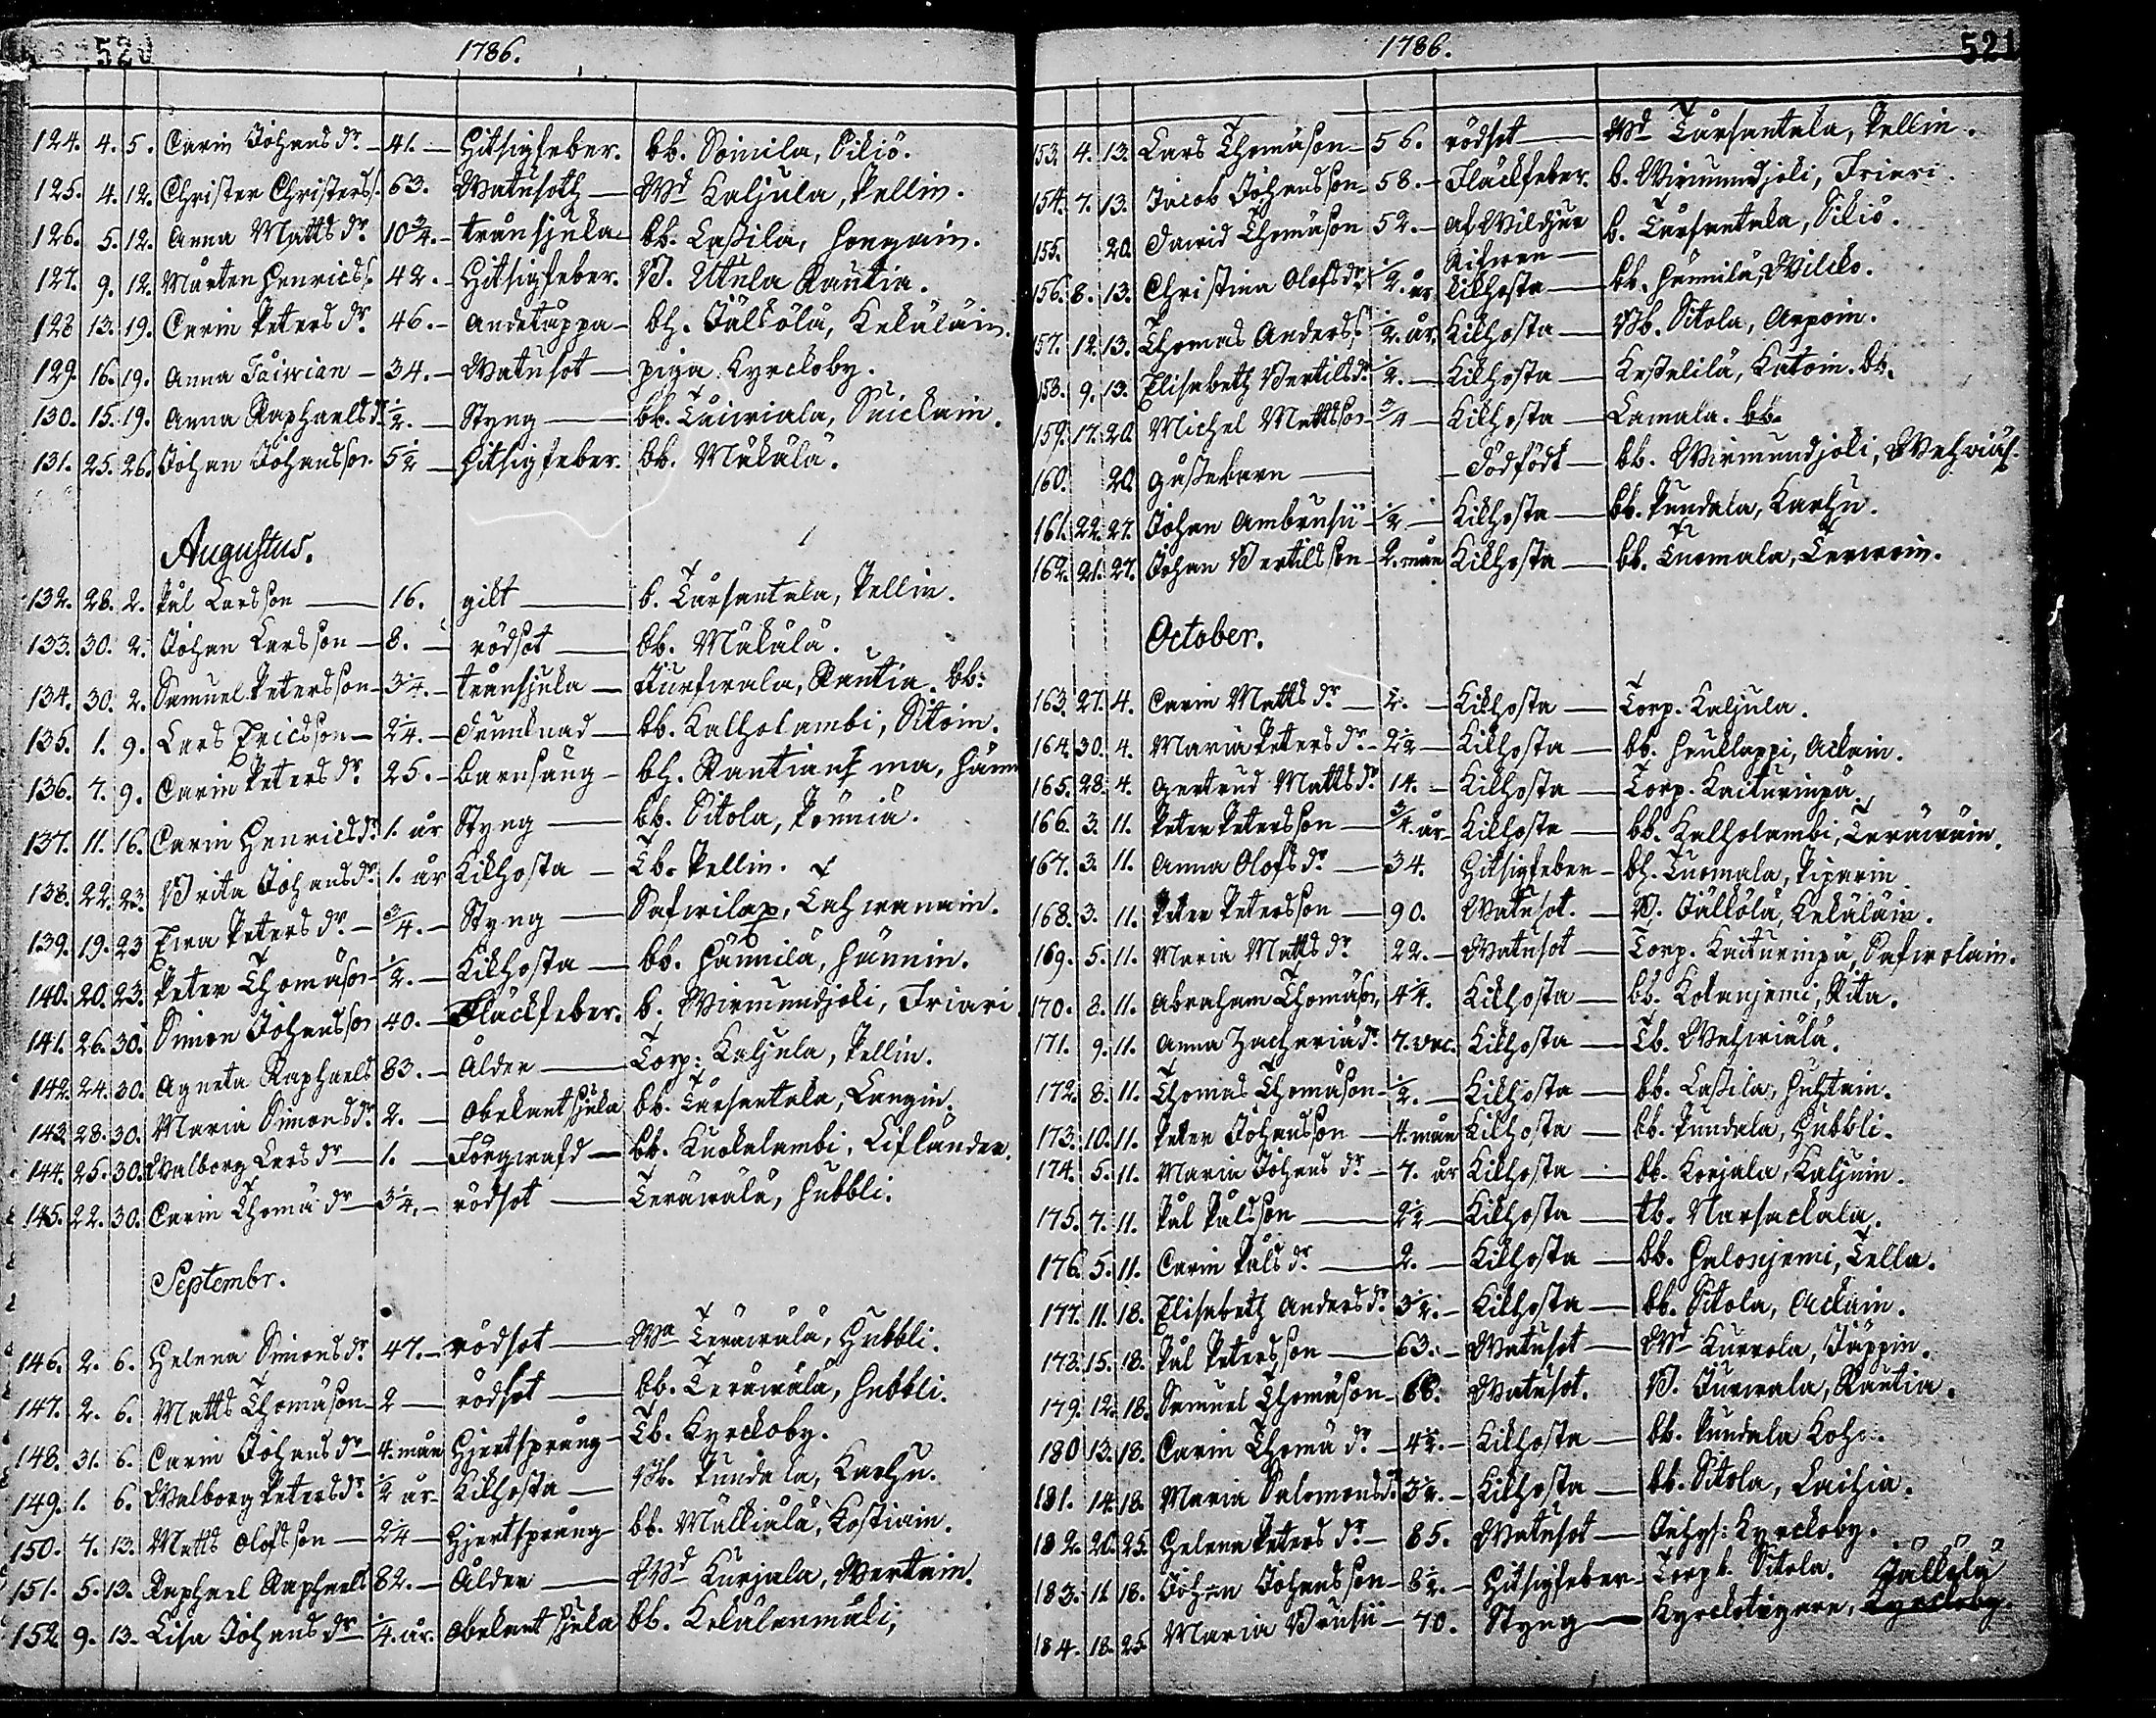 520
1786.
124. 4. 5. Carin Johans dr. 41. Hitsigfeber. bb. Soinila, Sikiö.
125. 4. 12. Christer Christerss. 63. Watusoth Wd Kaljula, Pellin.
126. 5. 12. Anna Matts dr. 10 3/4. tränsjuka bb. Lassila, Hongain.
127. 9. 12. Mårten Henricss. 42. Hitsigfeber. B. Utula Rautia.
128 13. 19. Carin Peters dr. 46. Andetäppa bh. Jälkölä, Kekäläin.
129. 16. 19. Anna 34. Watusot piga Kyrckoby.
130. 15. 19. Anna Raphaels dr 1/2. Styng bb.
131. 25. 26. Johan Johansson 5 1/2 Hitsigfeber. bb. Mäkälä.
Augustus.
132. 28. 2. Pål Larsson 16. gikt b. Tarfantala, Pellin.
133. 30. 2. Johan Larsson 8. rödsot bb. Mäkälä.
134. 30. 2. Samuel Petersson 3 1/4. tränsjuka Rautia. bb.
135. 1. 9. Lars Ericsson 2 1/4. drunknad bb. Kalholambi, Sitoin.
136. 7. 9. Carin Peters dr. 25. barnsäng bh.
137. 11. 16. Carin Henrics dr 1. år Styng bb. Sitola, Pönniä.
138. 22. 23. Brita Johans dr. 1. år Kikhosta Tb. Pellin.
139. 19. 23 Ewa Peters dr. 3/4. Styng
140. 20. 23. Peter Thomason 1/2. Kikhosta bb. Hännilä, Hännin.
141. 26. 30. Simon Johansson 40. Fläckfeber. b. Wirmundjoki, Friari
142. 24. 30. Agneta Raphaels 83. Ålder Torp: Kaljula, Pellin.
143. 28. 30. Maria Simons dr. 2. obekant sjuka bb. Tarfantala, Langin.
144. 25. 30. Walborg Lars dr 1. bb. Kuokalambi, Liflander.
145. 22. 30. Carin Thoma dr 3 1/4. rödsot Teräwälä, Hubbli.
Septembr.
146. 2. 6. Helena Simons dr. 47. rödsot Wa Teräwälä, Hubbli.
147. 2. 6. Matts Thomason 2 rödsot bb. Teräwälä, Hubbli.
148. 31. 6. Carin Johans dr 4. mån Hjertsprång Tb. Kyrckoby.
149. 1. 6. Walborg Peters dr. 1/2 år Kikhosta Bb. Pundala, Karhu.
150. 7. 13. Matts Olofsson 2 1/4 Hjertsprång bb. Mälkiälä, Kostiain.
151. 5. 13. Raphael Raphaels 82. Ålder Wd Kurjala, Wertain.
152 9. 13. Lisa Johans dr 1/4. år. obekant sjuka bb. Kekälenmäki,
1786.
521
153. 4. 13. Lars Thomason 56. rödsot Wd Tarfantala, Pellin.
154. 7. 13. Jacob Johansson 58. Fläckfeber. b. Wirmundjoki, Friari.
155. 20. David Thomason 52. af Wildjur b. Tarfantala, Sikiö.
Rifwen
156. 8. 13. Christina Olofs dr. 1/2. år Kikhosta bb. Hännilä, Wilcko.
157. 12. 13. Thomas Anderss. 1/2. år. Kikhosta Bb. Sitola, Arpoin.
158. 9. 13. Elisabeth Bertils dr 1/2. Kikhosta Kesselilä, Katoin. bb.
159. 17. 20. Michel Mattsson 3/4 Kikhosta Lamala. bb.
160. 20. Gossebarn Dödfödt bb. Wirmundjoki,
161. 22. 27. Johan Ambrusii 1/2 Kikhosta bb. Pundala, Karhu.
162. 21. 27. Johan Bertilsson 2. mån Kikhosta bb. Tuomala, Terwoin.
October.
163. 27. 4. Carin Matts dr. Kikhosta Torp. Kaljula.
164. 30. 4. Maria Peters dr. 2 1/2 Kikhosta bb. Huuklappi, Ackain.
165. 28. 4. Gertrud Matts dr 14. Kikhosta Torp. Kaiturinpä
166. 3. 11. Peter Petersson 3/4. år Kikhosta bb. Kalholambi, Teräwäin.
167. 3. 11. Anna Olofs dr. 34. Hitsigfeber bh. Tuomala, Piparin
168. 3. 11. Peter Petersson 90. Watusot. B. Jälkölä, Kekäläin.
169. 5. 11. Maria Matts dr 22. Watusot Torp. Kaiturinpä, Safwolain.
170. 8. 11. Abraham Thomason 4 1/4. Kikhosta bb. Kokanjemi, Rita.
171. 9. 11. Anna Zachariä dr. 7. vec. Kikhosta Tb. Wehwiälä.
172. 8. 11. Thomas Thomason 1/2. Kikhosta bb. Lassila, Huhtain.
173. 10. 11. Peter Johansson 4. mån Kikhosta bb. Pundala, Hubbli.
174. 5. 11. Maria Johans dr. 7. år Kikhosta bb. Korjala, Kaljuin.
175. 7. 11. Pål Pålsson 2 1/2 Kikhosta tb. Narfackala.
176. 5. 11. Carin Påls dr. 2. Kikhosta bb. Halonjemi, Tella.
177. 11. 18. Elisabeth Anders dr. 3 1/2. Kikhosta bb. Sitola, Ackain.
178. 15. 18. Pål Petersson 63. Watusot Wd Kurrola, Jäppin.
179. 12. 18. Samuel Thomason 68. Watusot. B. Jurwala, Rautia.
180 13. 18. Carin Thoma dr. 4 1/2. Kikhosta bb. Pundala
181. 14. 18. Maria Salomons dr 3 1/2. Kikhosta bb. Sitola, Laihia.
182. 20. 25. Helena Peters dr. 85. Watusot Inhys: Kyrckoby.
183. 11. 18. Johan Johansson 8 1/2. Hitsigfeber Torp b. Sitola. Jälkölä
184. 18. 25 Maria Brusii 70. Styng Kyrckotigare, Kyrckoby.